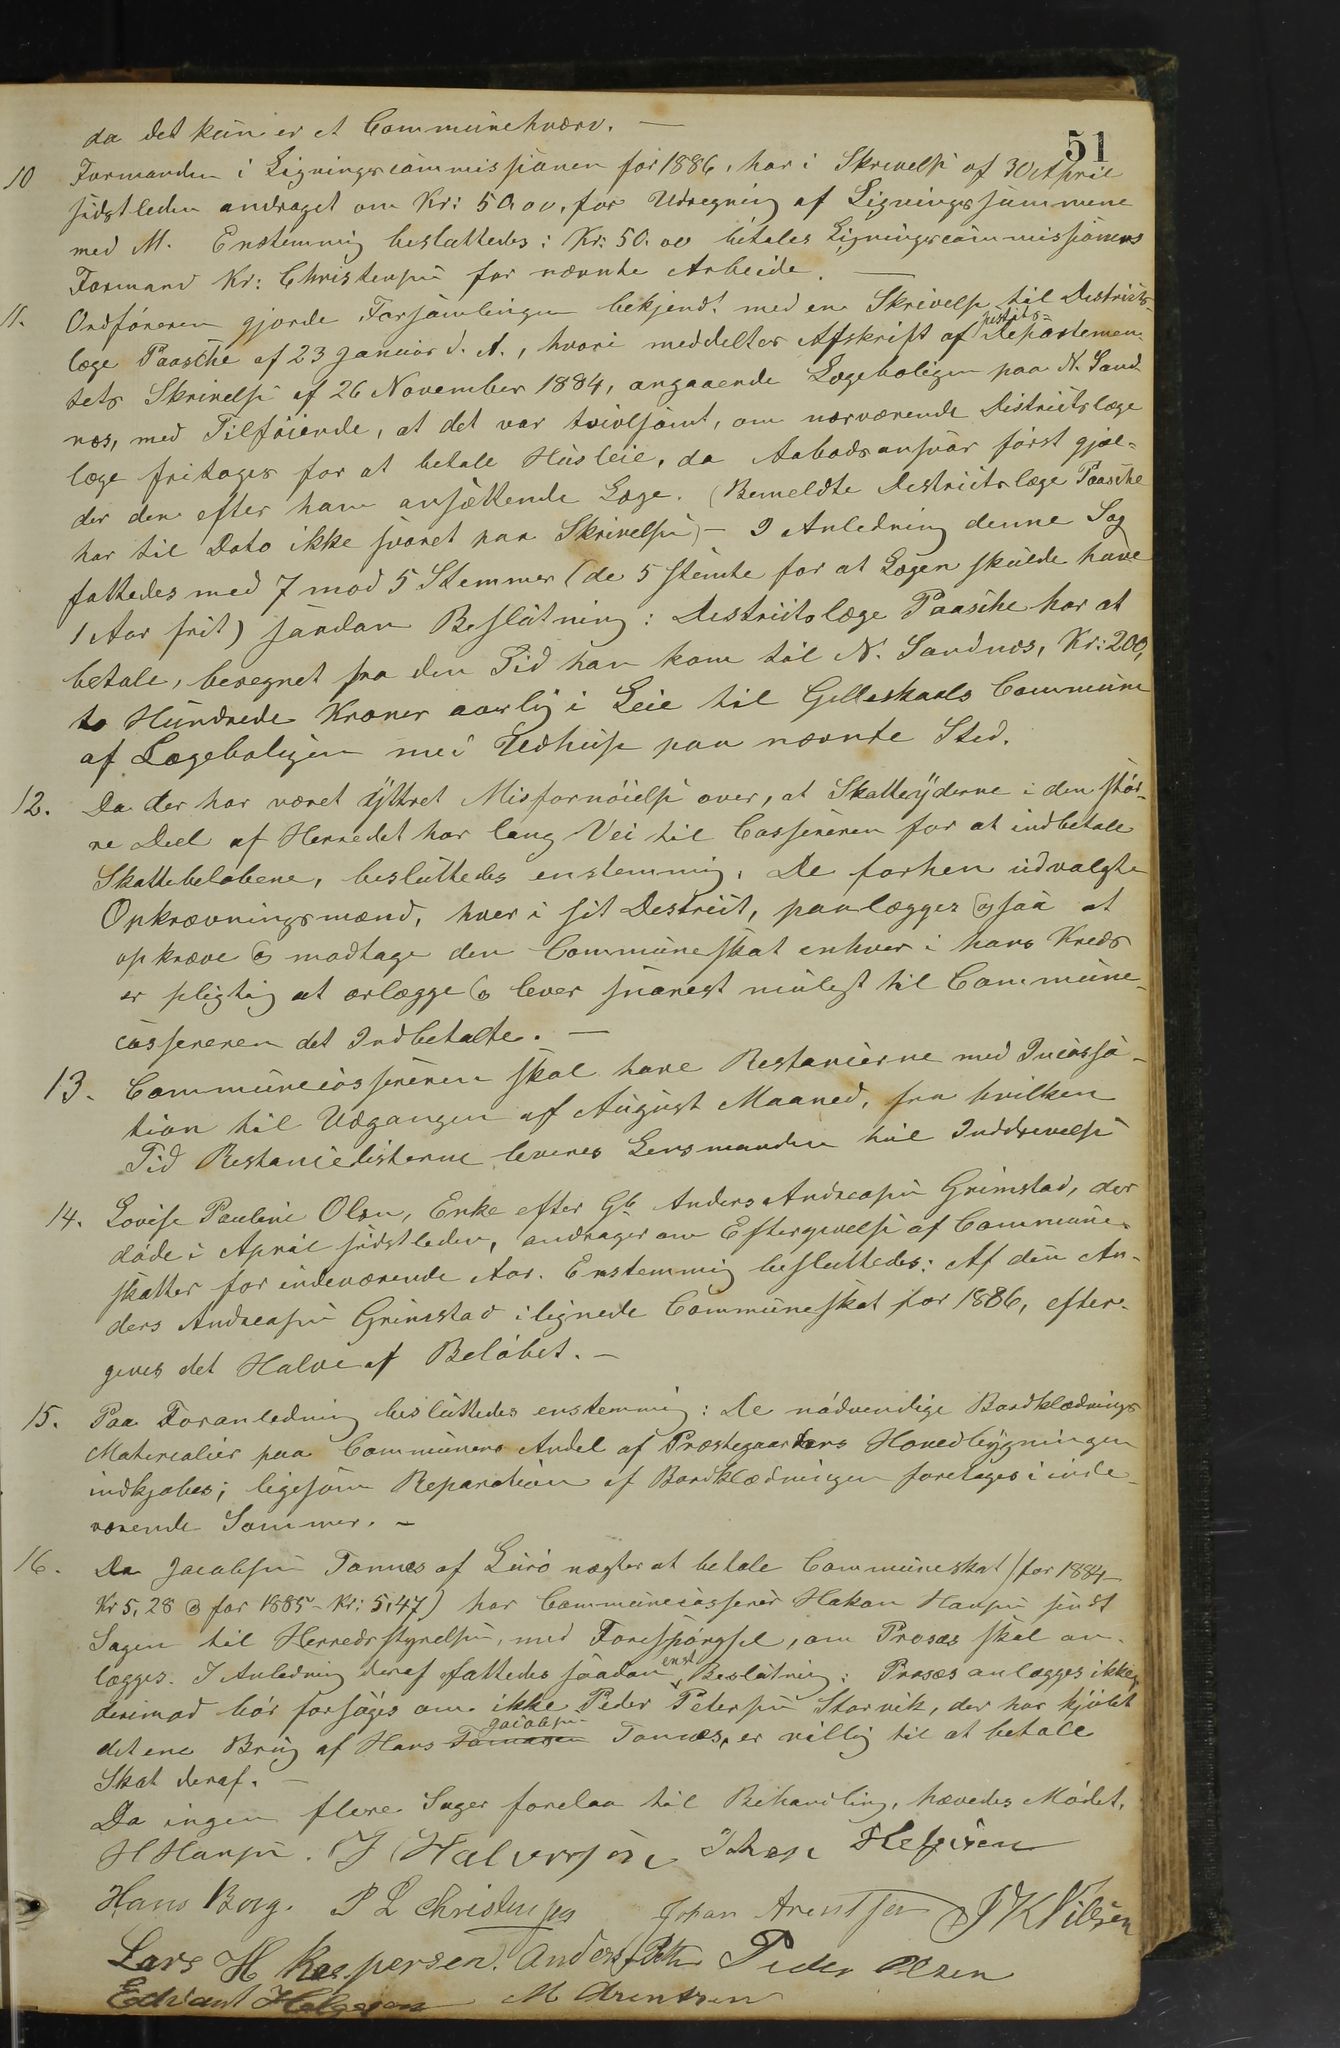 51
da det kun er et Communehværv. —
10 Formanden i Ligningscommissionen for 1886, har i Skrivelse af 30 April
sidstleden andraget om Kr: 50.00, for Udregning af Ligningssummene
med M. Enstemmig besluttedes: Kr: 50.00 betales Ligningscommissionens
Formand Kr: Christensen for nævnte Arbeide. —
11. Ordföreren gjorde Forsamlingen bekjendt med en Skrivelse til Districts-
læge Paasche af 23 Januar d. A., hvori meddeltes Afskrift af Departemen-
tets Skrivelse af 26 November 1884, angaaende Lægeboligen paa N. Sand-
næs, med Tilföiende, at det var tvivlsomt, om nærværende Districtslæge
læge fritages for at betale Husleie, da Aabodsansvar först gjæl-
der den efter ham ansættende Læge. (Bemeldte Districtslæge Paasche
har til Dato ikke svaret paa Skrivelsen) – I Anledning denne Sag
fattedes med 7 mod 5 Stemmer (de 5 stemte for at Lægen skulde have
1 Aar frit) saadan Beslutning: Districtslæge Paasche har at
betale, beregnet fra den Tid han kom til N. Sandnæs, Kr: 200,
to Hundrede Kroner aarlig i Leie til Gilleskaals Commune
af Lægeboligen med Udhuse paa nævnte Sted.
12. Da der har været yttret Misfornöielse over, at Skatteyderne i den stör-
re Deel af Herredet har lang Vei til Cassereren for at indbetale
Skattebelöbene, besluttedes enstemmig: De forhen udvalgte
Opkrævningsmænd, hver i sit District, paalægges ogsaa at
opkræve og modtage den Communeskat enhver i hans Kreds
er pligtig at erlægge og lever snarest muligt til Commune-
cassereren det Indbetalte. —
13. Communecassereren skal have Restancerne med Incassa-
tion til Udgangen af August Maaned, fra hvilken
Tid Restancelisterne leveres Lensmanden til Inddrivelse
14. Lovise Pauline Olsen, Enke efter Gb. Anders Andreasen Grimstad, der
döde i April sidstleden, andrager om Eftergivelse af Commune-
skatter for indeværende Aar. Enstemmig besluttedes: Af den An-
ders Andreasen Grimstad ilignede Communeskat for 1886, efter-
gives det Halve af Belöbet. —
15. Paa Foranledning besluttedes enstemmig: De nödvendige Bordklædnings
Materialier paa Communens Andel af Præstegaardens Hovedbygningen
indkjöbes; ligesom Reparation af Bordklædningen foretages i inde-
værende Sommer. –
16. Da Jacobsen Tonnes af Lurö nægter at betale Communeskat (for 1884
Kr 5,28 og for 1885 – Kr: 5,47) har Communecasserer Hakon Hansen sendt
Sagen til Herredsstyrelsen, med Forespörgsel, om Proces skal an-
lægges. I Anledning deraf fattedes saadan enst. Beslutning: Proces anlægges ikke,
derimod bör forsöges om ikke Peder Petersen Storvik, der har kjöbt
det ene Brug af Hans Jacobsen Tonnes, er villig til at betale
Skat deraf. —
Da ingen flere Sager forelaa til Behandling, hævedes Mödet.
H Hansen. J Halvorsen Johan Helgesen
Hans Borg. P L Christensen Johan Arentsen P K Nilsen
Lars H Kaspersen. Anders Peder Olsen
Edvard Helgesen M Arentsen